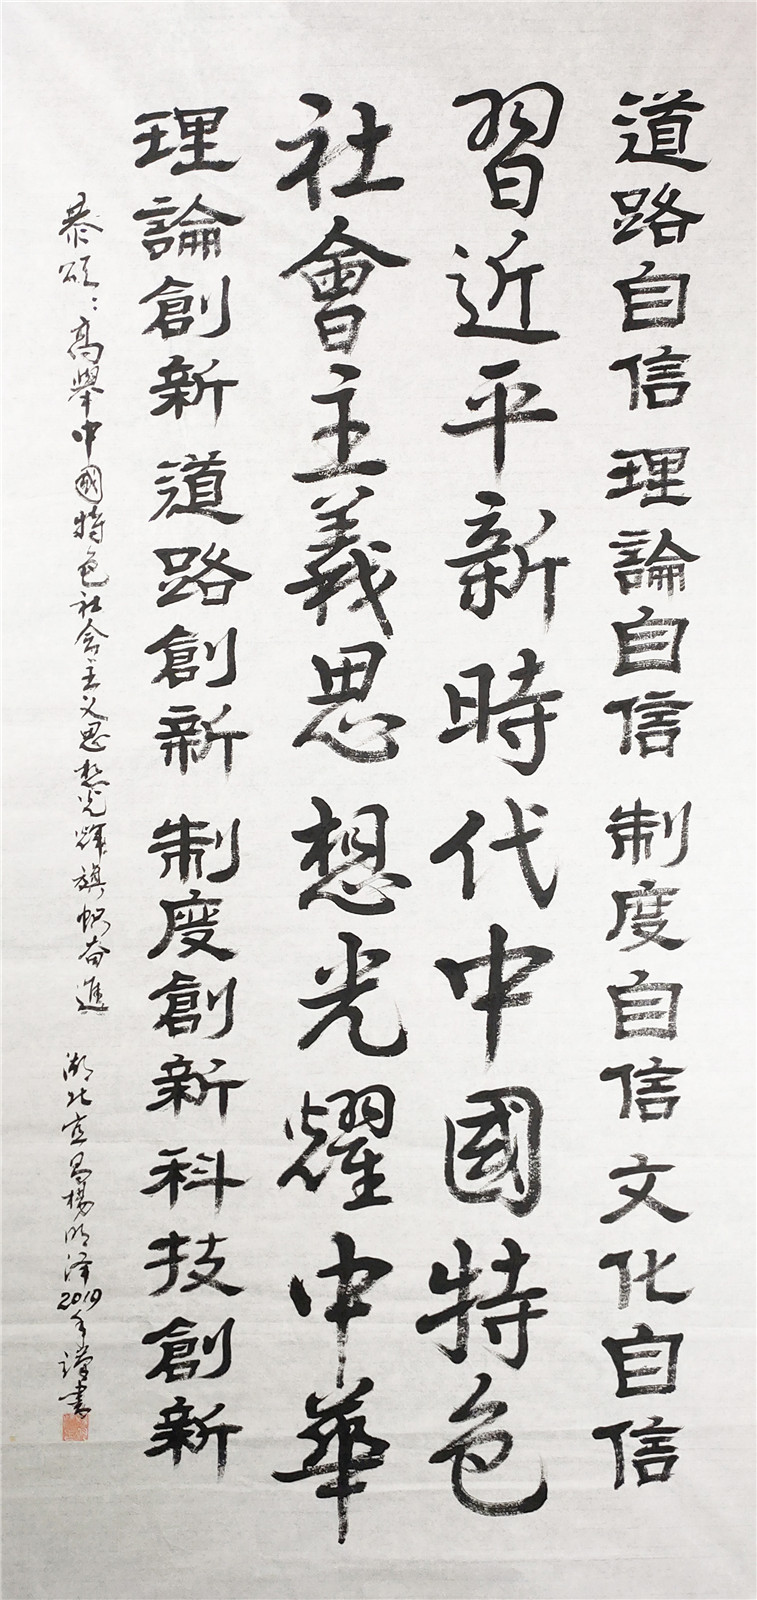 道路自信 理論自信 制度自信 文化自信
習近平新時代中國特色
社會主義思想光耀中華
理論創新 道路創新 制度創新 科技創新
恭頌：高舉中國特色社会主义思想光辉旗帜奋進 湖北宜昌楊明泽2019年謹書